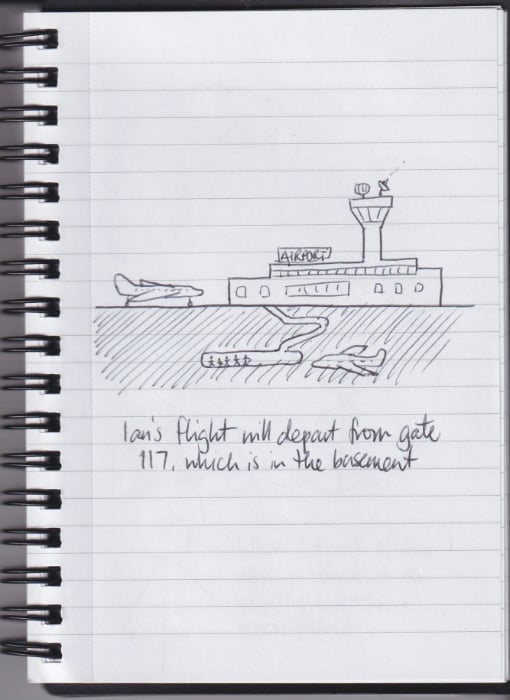 AIRPORT
Ian's flight will depart from gate
117, which is in the basement